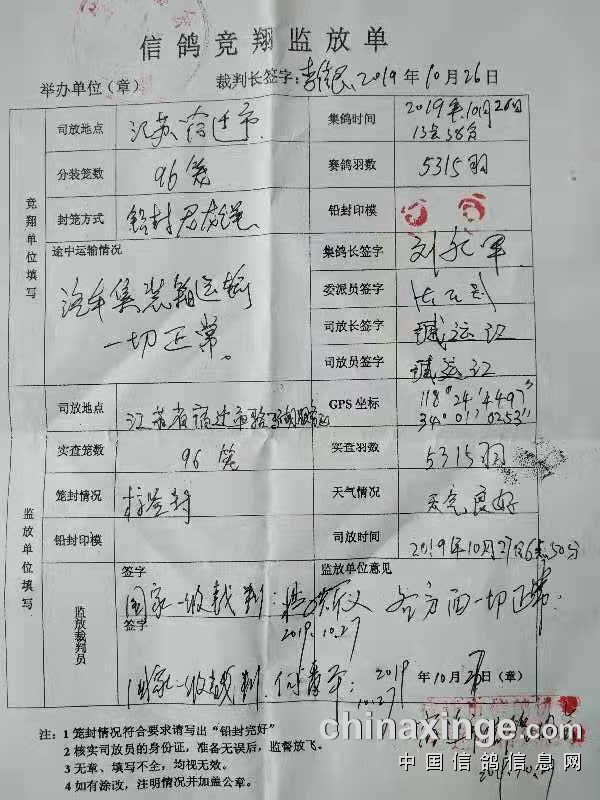 信鸽竞翔监放单
举办单位（章） 裁判长签字： 2019年10月26日
竞翔单位填写
司放地点 江苏宿迁市 集鸽时间 2019年10月26日
分装笼数 96笼 赛鸽羽数 5315羽
封笼方式 铅封 铅封印模
途中运输情况 集鸽长签字
汽车集装箱运输 委派员签字
一切正常。 司放长签字
司放员签字
监放单位填写
司放地点 江苏省宿迁市 GPS坐标 118°24'4497"
34°01'0253"
实查笼数 96笼 实查羽数 5315羽
笼封情况 天气情况 天气良好
铅封印模 司放时间 2019年10月27日6点50分
监放裁判员
签字 监放单位意见
国家一级裁判： 各方面一切正常
签字 2019.10.27
国家一级裁判： 2019年10月27日（章）
10.27
注：1 笼封情况符合要求请写出“铅封完好”
2 核实司放员的身份证，准备无误后，监督放飞。
3 无章、填写不全，均视无效。
4 如有涂改，注明情况并加盖公章。
chinaxinge.com
中国信鸽信息网